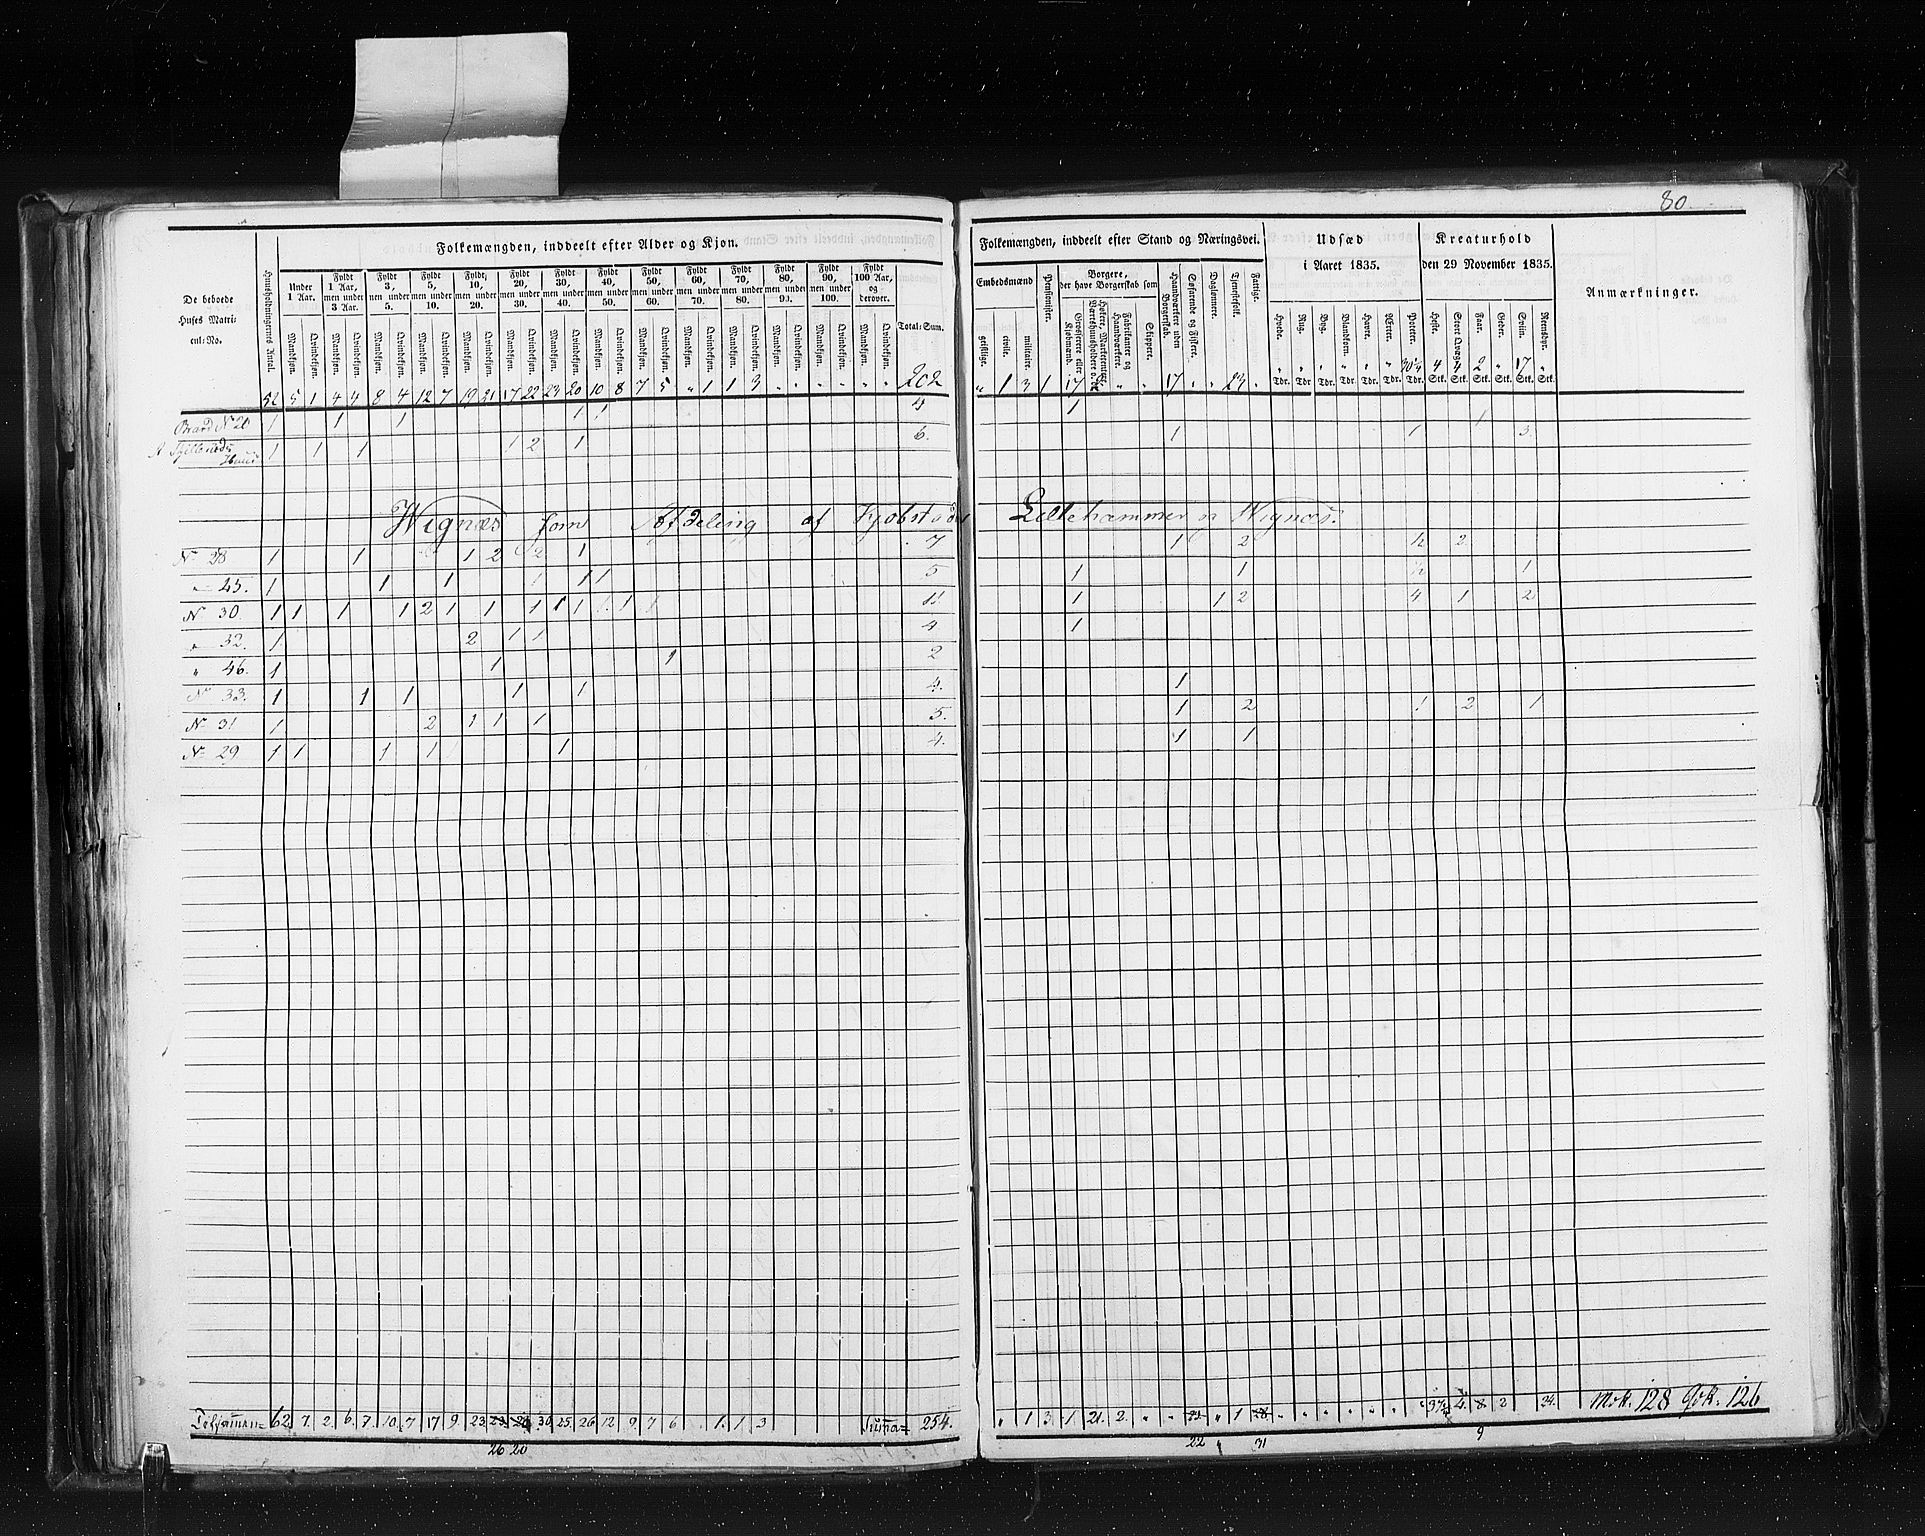 80
Folkemængden, inddeelt efter Alder og Kjøn.
De beboede Huses Matricul-No.
Huusholdningernes Antal.
Under 1 Aar.
Fyldt 1 Aar, men under 3 Aar.
Fyldt 3, men under 5.
Fyldt 5, men under 10.
Fyldt 10, men under 20.
Fyldt 20, men under 30.
Fyldt 30, men under 40.
Fyldt 40, men under 50.
Fyldt 50, men under 60.
Fyldt 60, men under 70.
Fyldt 70, men under 80.
Fyldt 80, men under 90.
Fyldt 90, men under 100.
Fyldt 100 Aar, og derover.
Mandkjøn. Qvindekjøn.
Total-Sum.
52 5 1 4 4 8 4 12 7 19 21 17 22 23 20 10 8 7 5 " 1 1 3 " " " " " " 202
Folkemængden, inddeelt efter Stand og Næringsvei.
Embedsmænd
geistlige.
civile.
militaire.
Pensionister.
Borgere, der have Borgerskab som
Grosserere eller Kjøbmænd.
Høkere, Marketentere, Værtshuusholdere o. desl.
Fabrikanter og Haandværkere.
Skippere.
Haandværkere uden Borgerskab.
Søfarende og Fiskere.
Daglønnere.
Tjenestefolk.
Fattige.
Udsæd i Aaret 1835.
Hvede. Rug. Byg. Blandkorn. Havre. Ærter. Poteter.
Tdr. Tdr. Tdr. Tdr. Tdr. Tdr. Tdr.
Kreaturhold den 29 November 1835.
Heste. Stort Qvæg. Faar. Geder. Sviin. Rensdyr.
Stk. Stk. Stk. Stk. Stk. Stk.
Anmærkninger.
" 1 3 1 17 " " 17 " " 23 "
4 4 2 " 17 "
Gaard No 20 1 1 1 1 1 4 1 1
Huus 1 1 1 1 2 1 6. 1 1 3
Wignæs som Afdeling af Kjøbstaden Lillehammer n Wignæs.
No 28 1 1 1 2 2 1 7 1 2 2
" 45. 1 1 1 1 1 1 5 1 1 1
No 30. 1 1 1 1 2 1 1 1 1 1 1 1 1 11. 1 1 2 4 1 2
" 32. 1 2 1 1 4 1
" 46. 1 1 1 2
No 33. 1 1 1 1 1 4. 1
No 31 1 2 1 1 1 5. 1 2 1 2 1
No 29 1 1 1 1 1 4. 1 1
62 7. 2. 6. 7. 10. 7 17 9. 23 30 25. 26 12 9 7 6 . 1. 1. 3 Summa= 254.
" 1 3. 1. 21. 2. " " " 1 " " " " " " 4. 8 2 24. Mok. 128 Qvk. 126
26 20
22 31 9